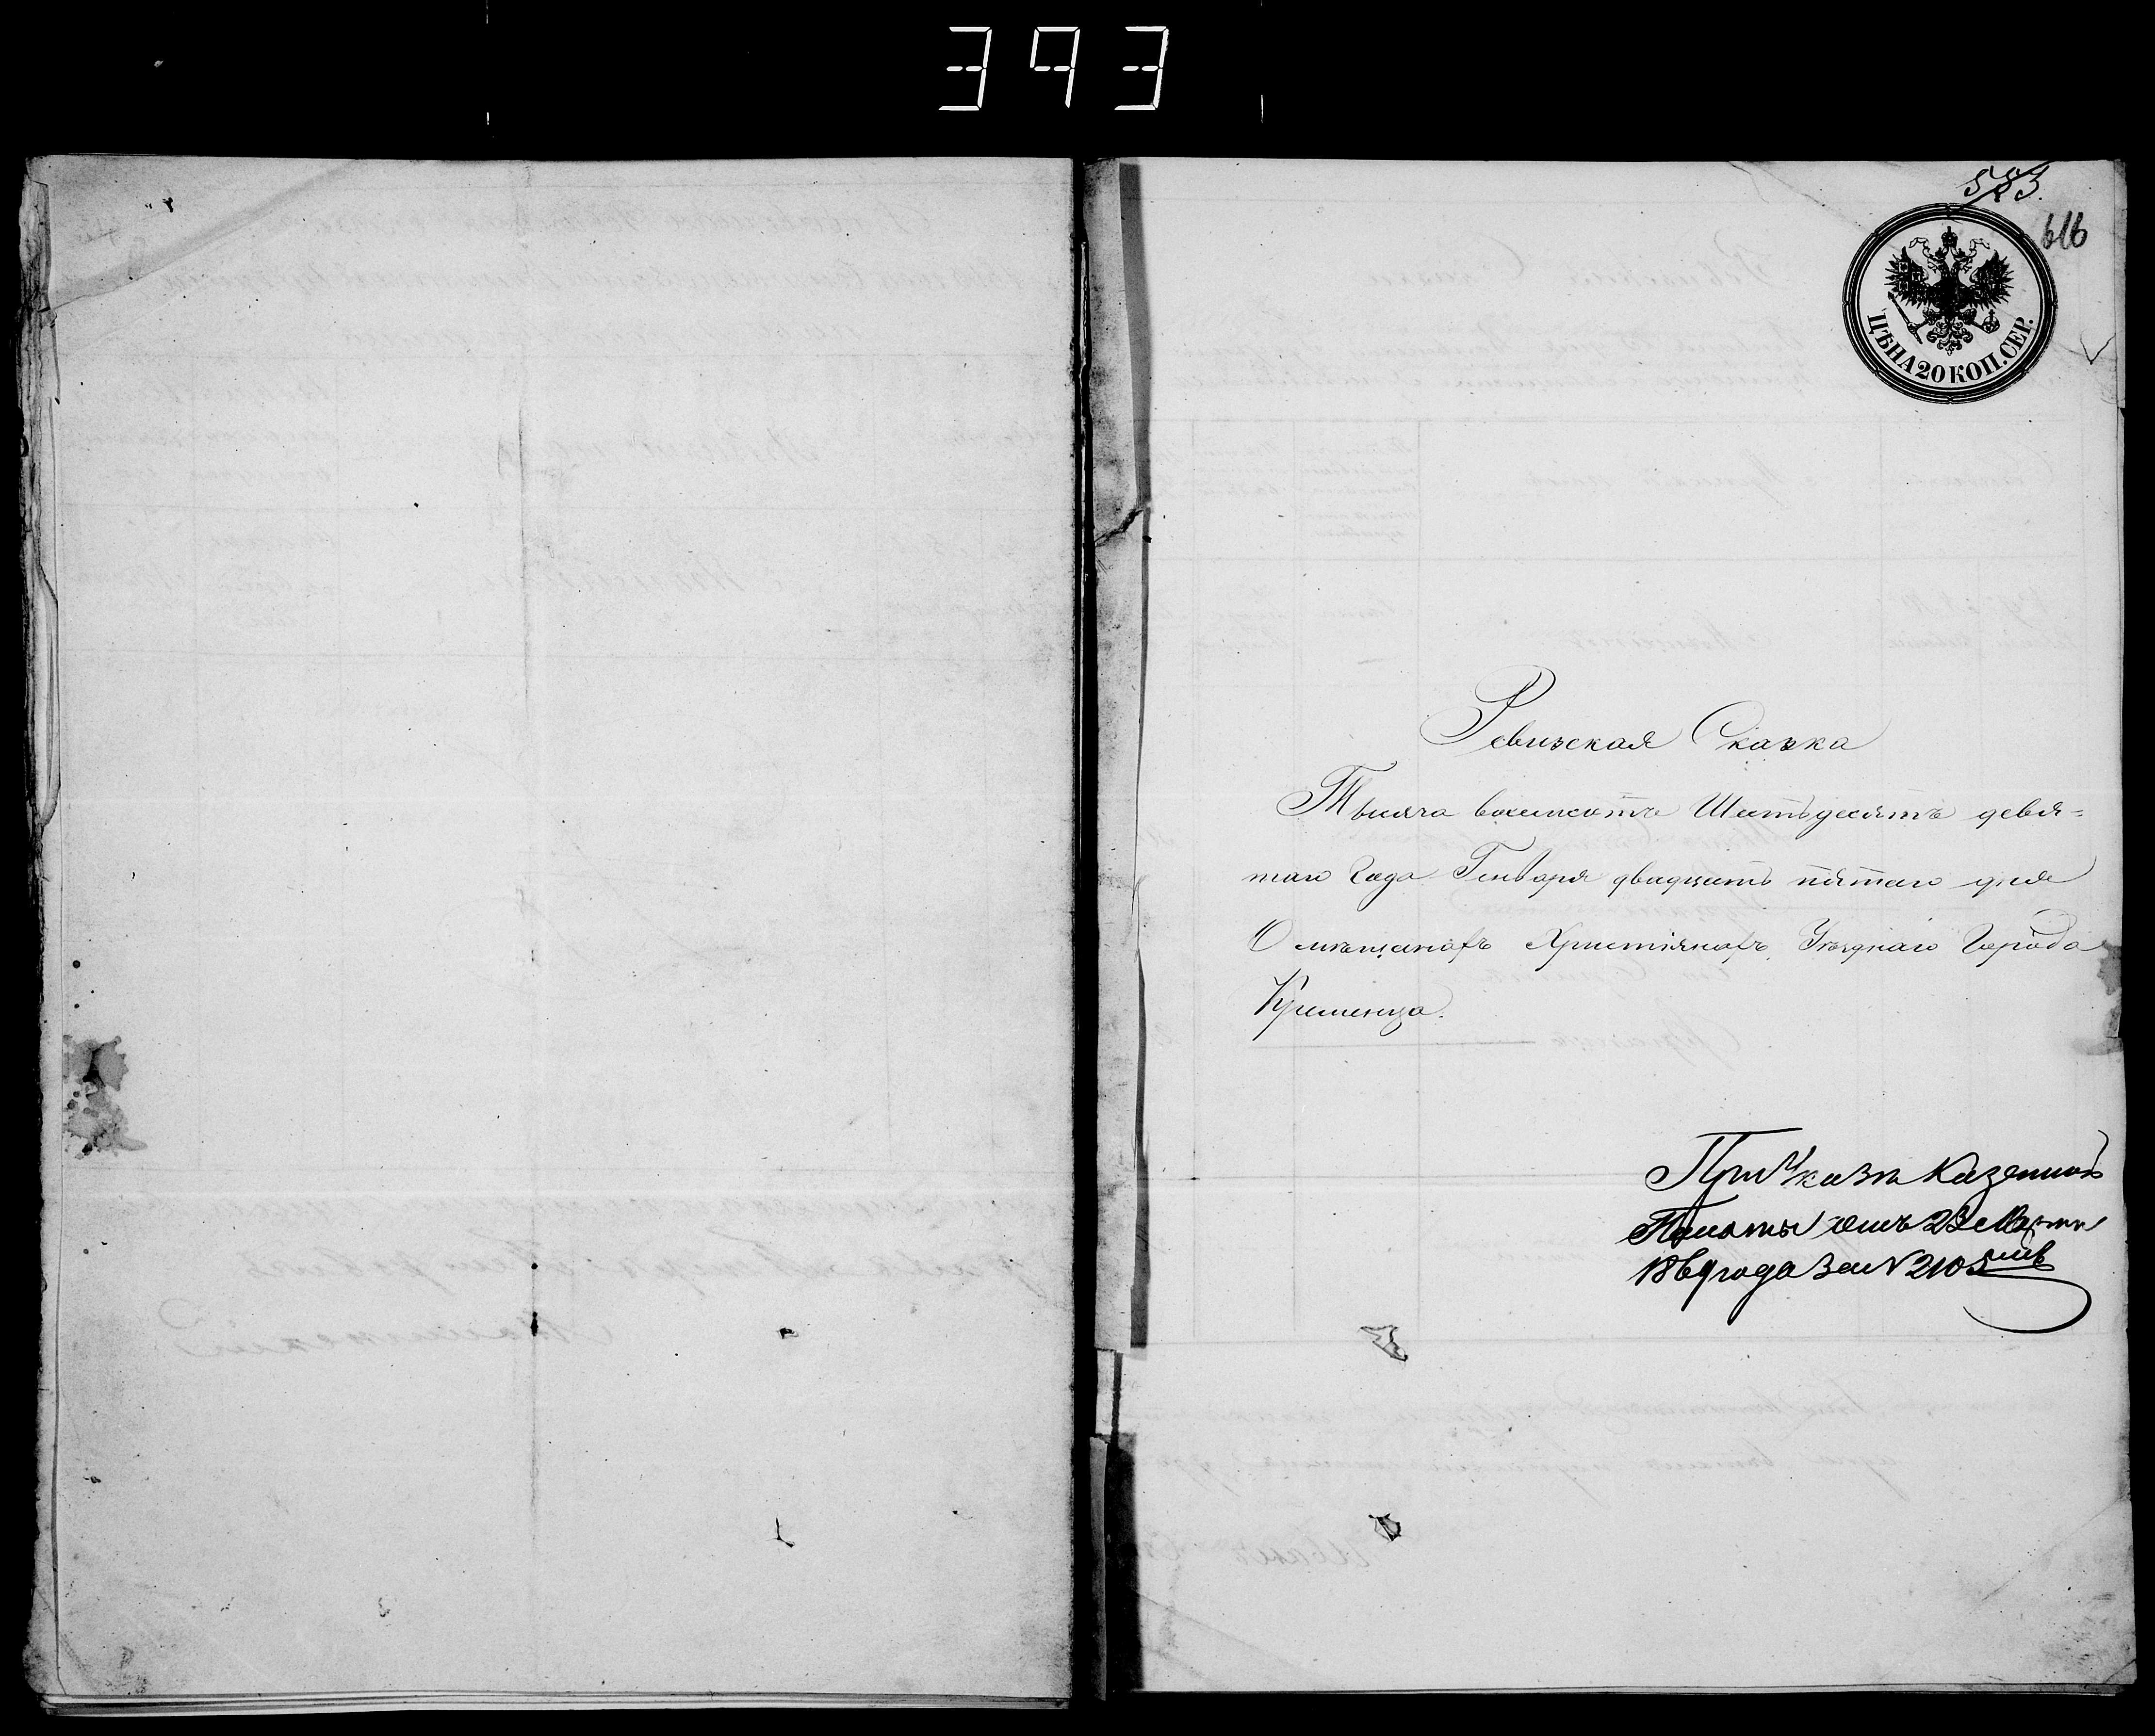 393
583.
616
ЦѢНА 20 КОП. СЕР.
Ревизская Сказка
Тысяча восемсотъ Шестьдесятъ девя=
таго Года Генваря двадцать пятаго дня
О мѣщанахъ Христіянахъ Уѣзднаго Города
Кременца.
При Указѣ Казенной
Палаты отъ 23 Марта
1869 года за N 2105